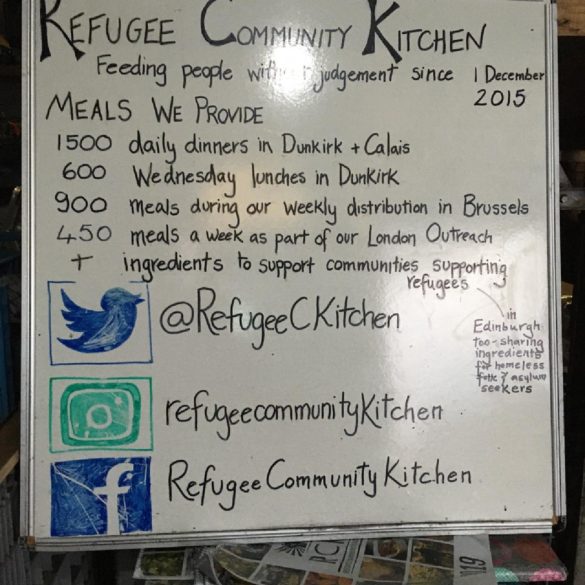 REFUGEE COMMUNITY KITCHEN
Feeding people without judgement since 1 December
2015
MEALS WE PROVIDE
1500 daily dinners in Dunkirk + Calais
600 Wednesday lunches in Dunkirk
900 meals during our weekly distribution in Brussels
450 meals a week as part of our London Outreach
+ ingredients to support communities supporting
refugees
in
Edinburgh
too - sharing
ingredients
for homeless
folk & asylum
seekers
@RefugeeCKitchen
refugeecommunityKitchen
f RefugeeCommunityKitchen